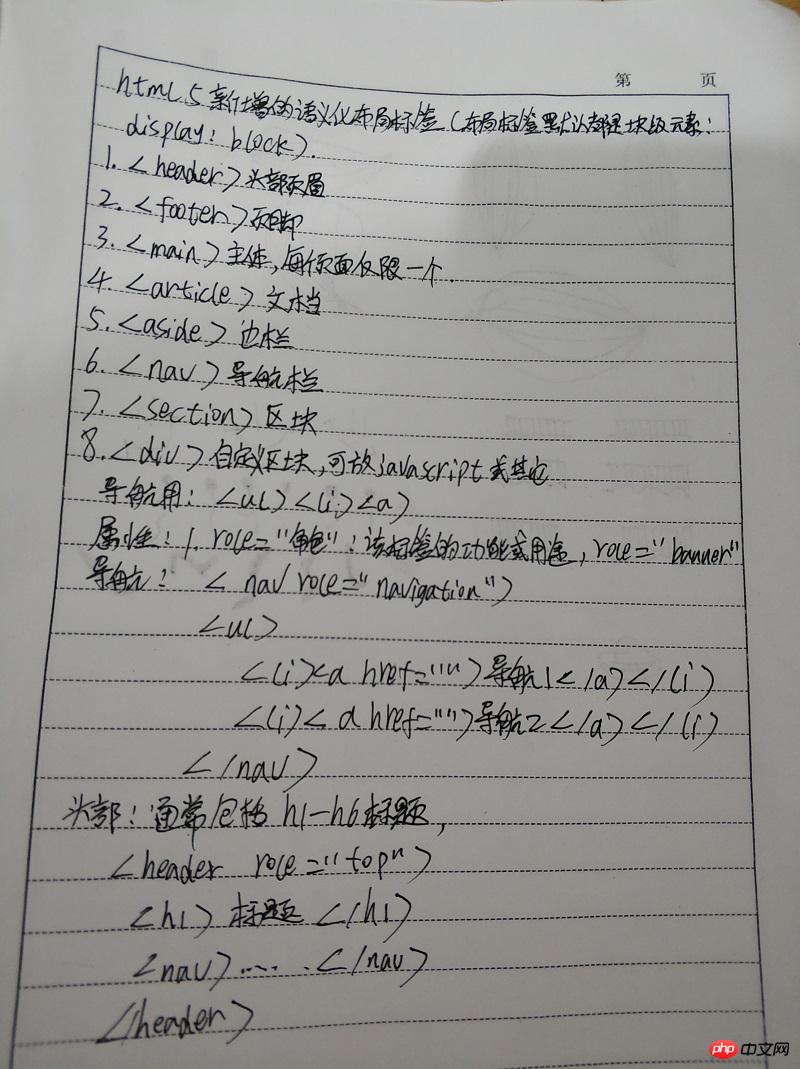 第 页
html5新增的语义化布局标签(布局标签默认都是块级元素:
display: block).
1. <header>头部页眉
2. <footer>页脚
3. <main>主体,每个页面仅限一个.
4. <article>文档
5. <aside>边栏
6. <nav>导航栏
7. <section>区块
8. <div>自定义区块,可放javascript或其它
导航用: <ul><li><a>
属性: 1. role="角色": 该标签的功能或用途, role="banner"
导航: <nav role="navigation">
<ul>
<li><a href="">导航1</a></li>
<li><a href="">导航2</a></li>
</nav>
头部: 通常包括 h1-h6标题,
<header role="top">
<h1>标题</h1>
<nav>... .</nav>
</header>
php 中文网